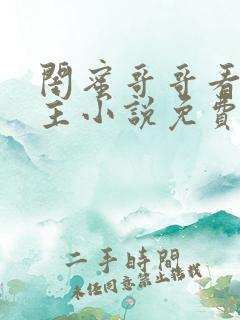 閨蜜哥哥看
主小說免費
二手時間
未經同意禁止轉載